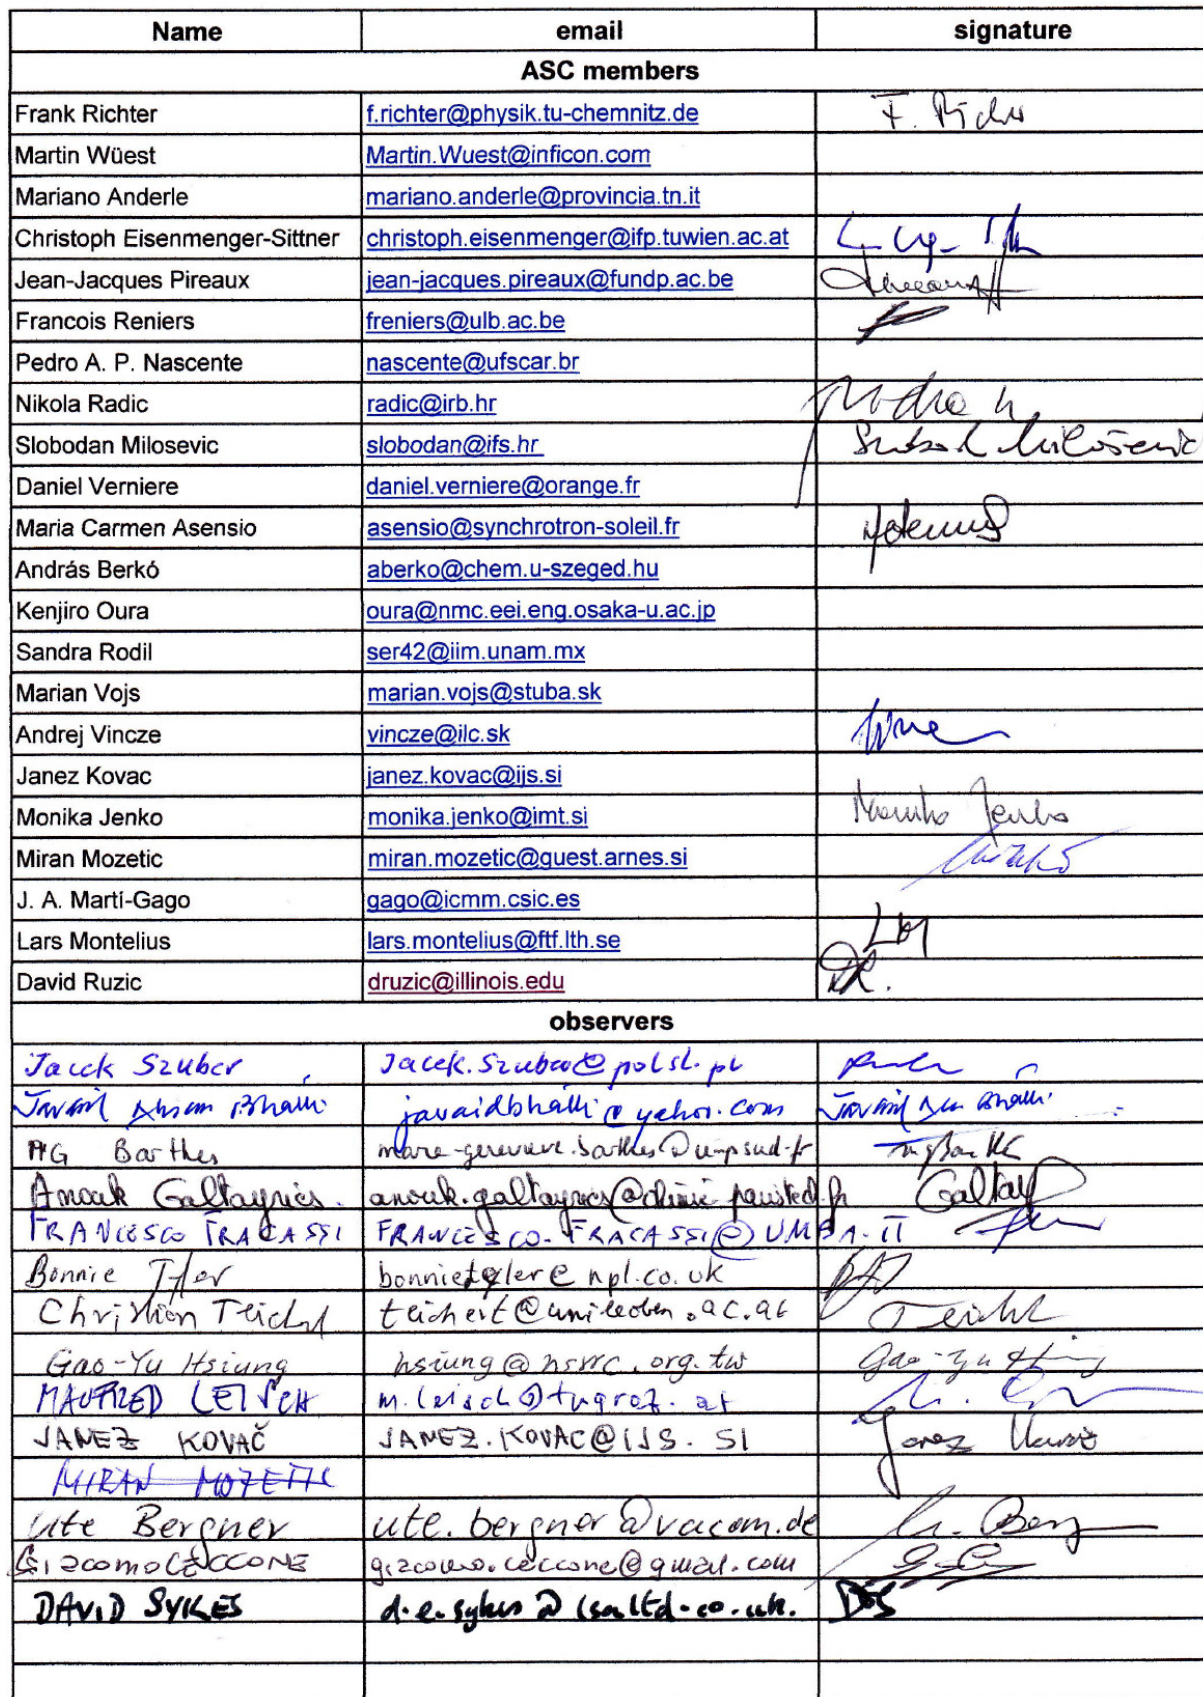 Name email signature
ASC members
Frank Richter f.richter@physik.tu-chemnitz.de F. Richter
Martin Wüest Martin.Wuest@inficon.com
Mariano Anderle mariano.anderle@provincia.tn.it
Christoph Eisenmenger-Sittner christoph.eisenmenger@ifp.tuwien.ac.at
Jean-Jacques Pireaux jean-jacques.pireaux@fundp.ac.be
Francois Reniers freniers@ulb.ac.be
Pedro A. P. Nascente nascente@ufscar.br
Nikola Radic radic@irb.hr
Slobodan Milosevic slobodan@ifs.hr Milošević
Daniel Verniere daniel.verniere@orange.fr
Maria Carmen Asensio asensio@synchrotron-soleil.fr
András Berkó aberko@chem.u-szeged.hu
Kenjiro Oura oura@nmc.eei.eng.osaka-u.ac.jp
Sandra Rodil ser42@iim.unam.mx
Marian Vojs marian.vojs@stuba.sk
Andrej Vincze vincze@ilc.sk
Janez Kovac janez.kovac@ijs.si
Monika Jenko monika.jenko@imt.si Monika Jenko
Miran Mozetic miran.mozetic@guest.arnes.si
J. A. Martí-Gago gago@icmm.csic.es
Lars Montelius lars.montelius@ftf.lth.se
David Ruzic druzic@illinois.edu DR.
observers
Jacek Szuber Jacek.Szuber@polsl.pl
Javaid Ahsan Bhatti javaidbhatti@yahoo.com Javaid Bhatti
MG Barthes
Anouk Galtayries anouk.galtayries@chimie-paristech.fr Galtay
FRANCESCO FRACASSI FRANCESCO.FRACASSI@UNIBA.IT
Bonnie Tyler bonnie.tyler@npl.co.uk
Christian Teichert teichert@unileoben.ac.at Teichert
Gao-Yu Hsiung hsiung@nsrrc.org.tw Gao-Yu Hsiung
MANFRED LEISCH m.leisch@tugraz.at
JANEZ KOVAČ JANEZ.KOVAC@IJS.SI Janez Kovač
MIRAN MOZETIC
Ute Bergner ute.bergner@vacom.de U. Berg
Giacomo CECCONE giacomo.ceccone@gmail.com
DAVID SYKES d.e.sykes@lsaltd.co.uk. DES